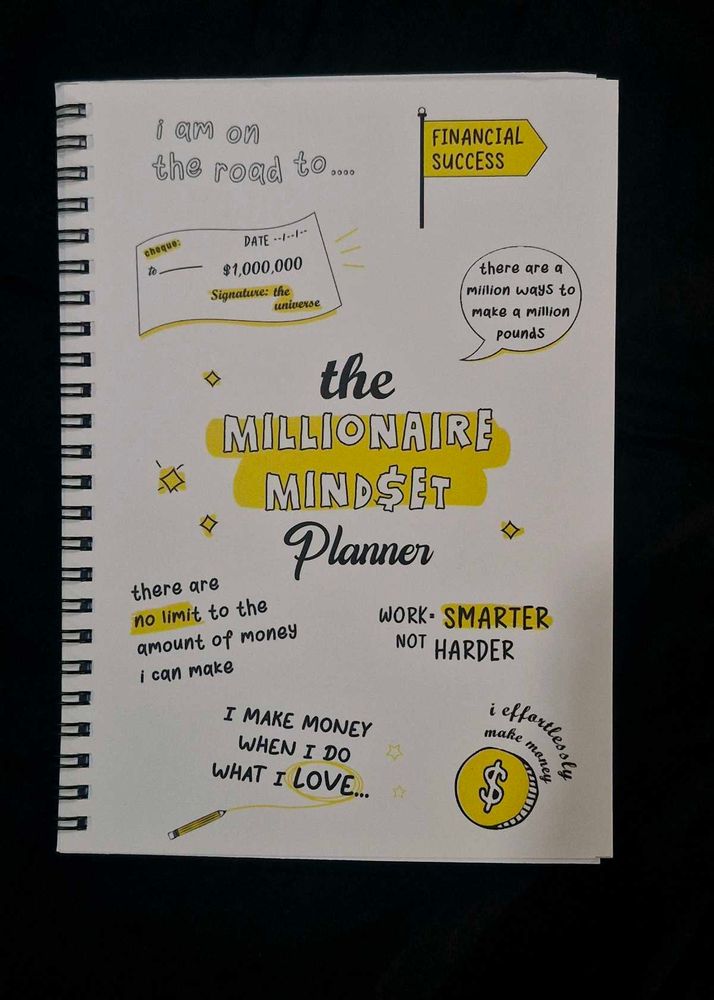 i am on
the road to....
FINANCIAL
SUCCESS
cheque:
DATE --/--/--
to
$1,000,000
Signature: the
universe
there are a
million ways to
make a million
pounds
the
MILLIONAIRE
MIND$ET
Planner
there are
no limit to the
amount of money
i can make
WORK- SMARTER
NOT HARDER
I MAKE MONEY
WHEN I DO
WHAT I LOVE...
i effortlessly
make money
$